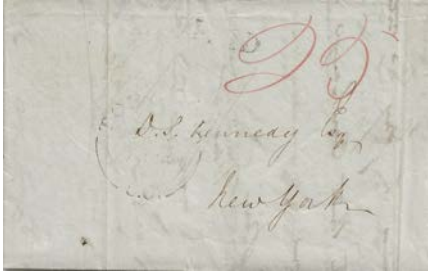 25
D. S. Kennedy Esq
New York